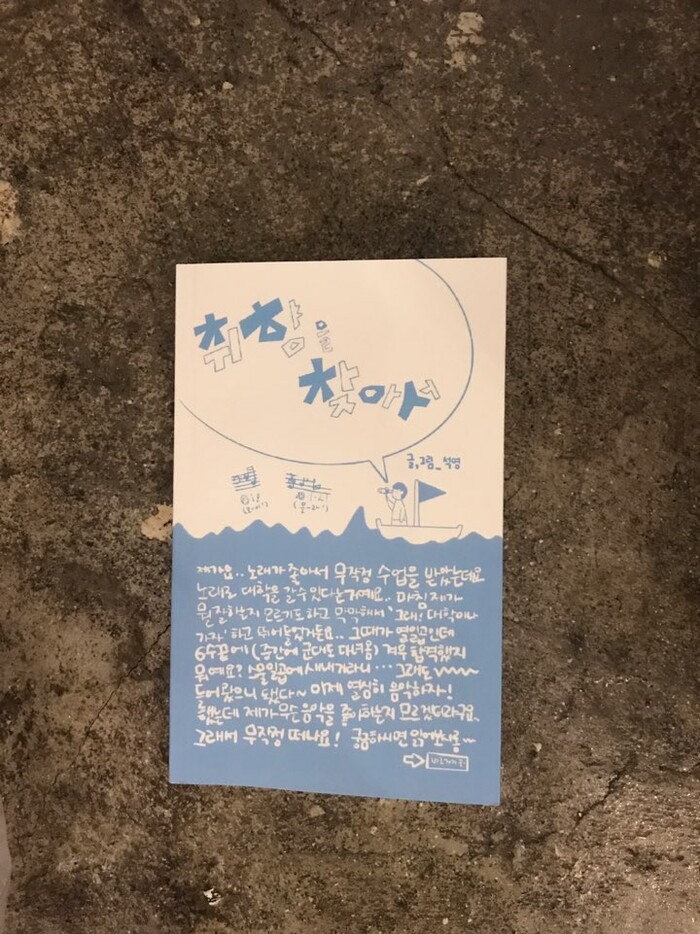 취향을
찾아서
글,그림_석영
제가요.. 노래가 좋아서 무작정 수업을 받았는데요
노래로 대학을 갈 수 있다는거예요.. 마침 제가
뭘 잘하는지 모르기도 하고 막막해서 '그래! 대학이나
가자' 하고 뛰어들었거든요.. 그때가 열일곱인데
6수 끝에 (중간에 군대도 다녀옴) 겨우 합격했지
뭐예요? 스물일곱에 새내기라니... 그래도~~~
들어왔으니 됐다~ 이제 열심히 음악하자!
했는데 제가 무슨 음악을 좋아하는지 모르겠더라구요.
그래서 무작정 떠나요! 궁금하시면 읽어보시롱~